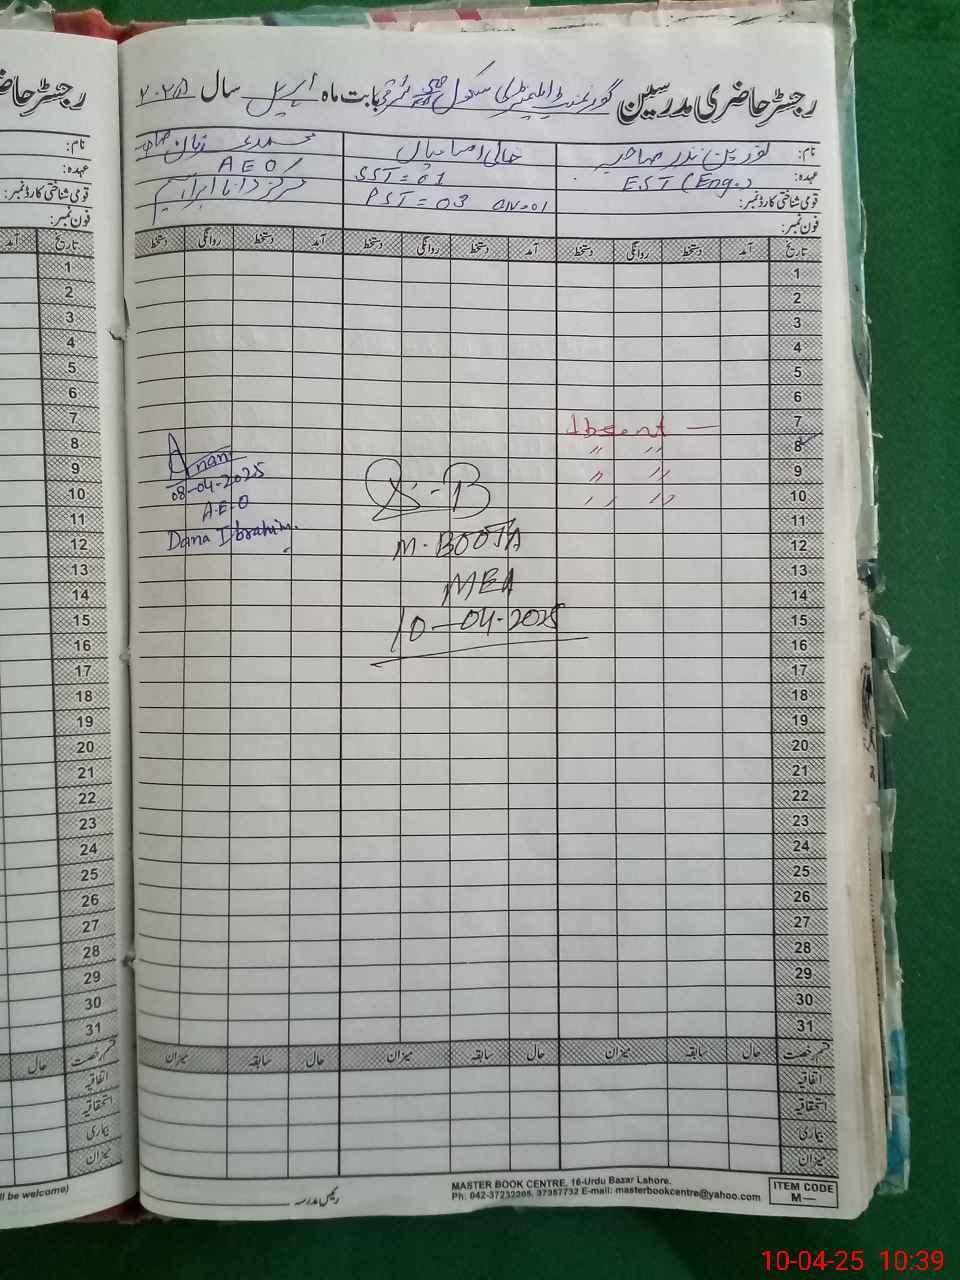 رجسٹر حاضری مدرسین گورنمنٹ ایلیمنٹری سکول بابت ماہ اپریل سال ۲۰۲۵
نام: نورین نذر صاحبہ
خالی اسامیاں
محمد زمان صاحب
عہدہ: EST (Eng.)
SST = 01
AEO
قومی شناختی کارڈ نمبر:
PST = 03
مرکز دانا ابراہیم
فون نمبر:
تاریخ آمد دستخط روانگی دستخط آمد دستخط روانگی دستخط آمد دستخط روانگی دستخط
1
2
3
4
5
6
7 Absent —
8 " "
9 " "
10 " "
11
12
13
14
15
16
17
18
19
20
21
22
23
24
25
26
27
28
29
30
31
08-04-2025
A.E.O
Dana Ibrahim.
S.B
M. BOOTA
MEA
10-04-2025
قسم رخصت حال سابقہ میزان حال سابقہ میزان حال سابقہ میزان
اتفاقیہ
استحقاقیہ
بیماری
میزان
رئیس مدرسہ
MASTER BOOK CENTRE, 16-Urdu Bazar Lahore.
Ph: 042-37232205, 37357732 E-mail: masterbookcentre@yahoo.com
ITEM CODE
M—
رجسٹر حاض
نام:
عہدہ:
قومی شناختی کارڈ نمبر:
فون نمبر:
تاریخ آمد
1
2
3
4
5
6
7
8
9
10
11
12
13
14
15
16
17
18
19
20
21
22
23
24
25
26
27
28
29
30
31
قسم رخصت حال
اتفاقیہ
استحقاقیہ
بیماری
میزان
ll be welcome)
10-04-25 10:39